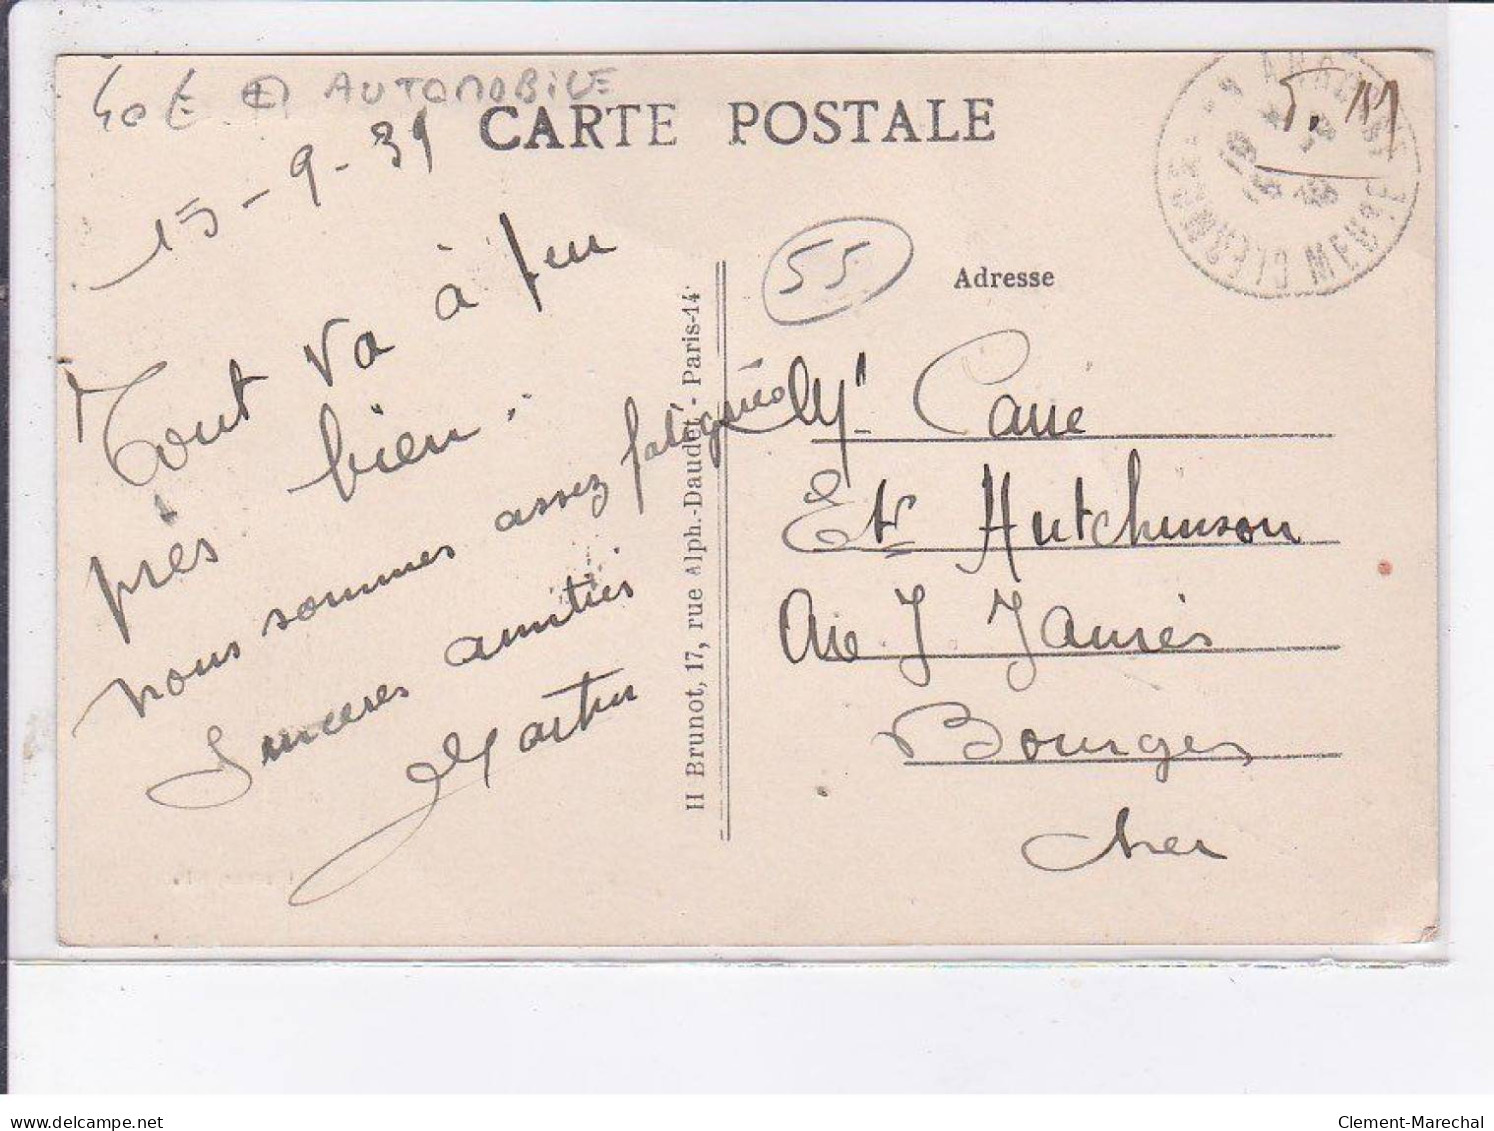 40 € AUTOMOBILE
CARTE POSTALE
15-9-39
F.M
55
Adresse
Tout va à peu
près bien.
nous sommes assez fatigués
Sincères amitiés
Martin
II Brunot, 17, rue Alph.-Daudet - Paris-14
Mr Carré
Ets Hutchinson
Ave J Jaurès
Bourges
Cher
CLERMONT MEUSE
delcampe.net
Clement-Marechal